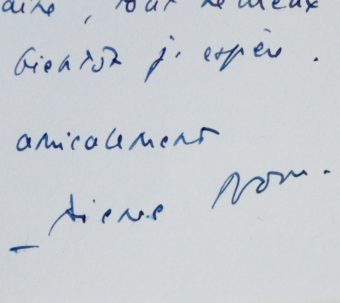 tout le mieux
bientôt j'espère.
amicalement
Pierre